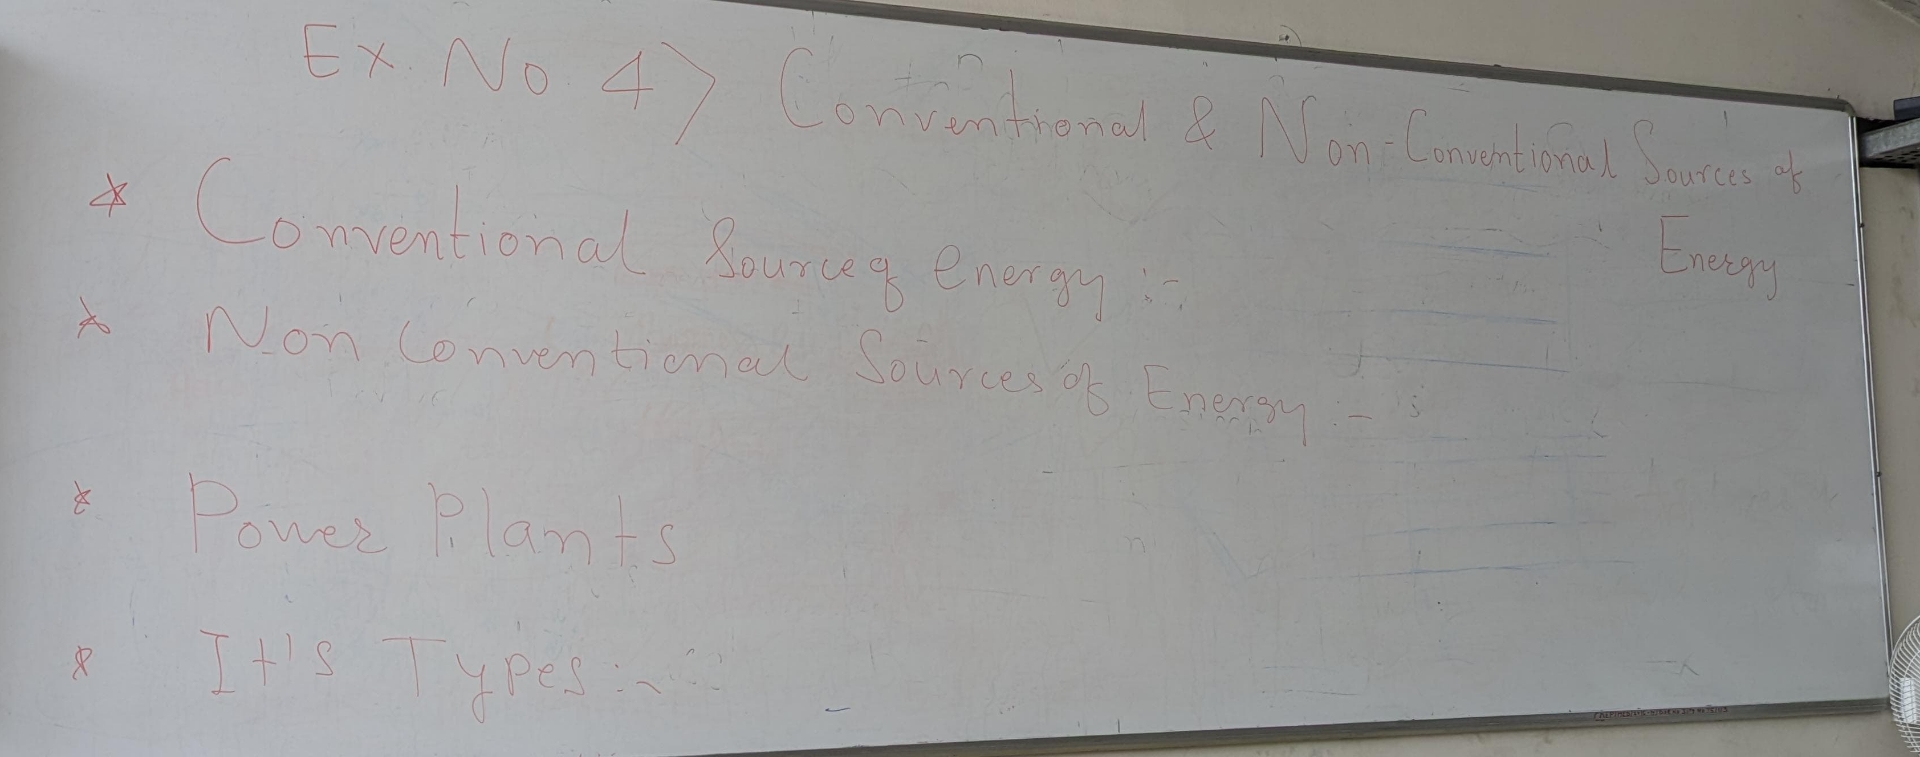 Ex. No. 4> Conventional & Non-Conventional Sources of
Energy
* Conventional Source of energy :-
* Non Conventional Sources of Energy :-
* Power Plants
* It's Types :-